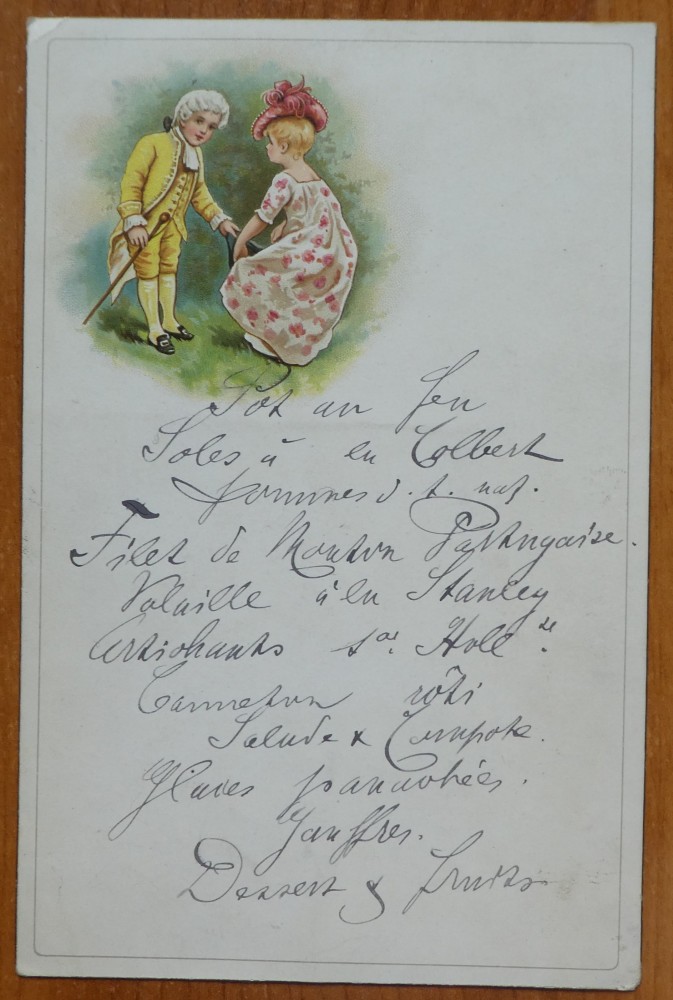 Pot au feu
Soles à la Colbert
Pommes d. t. nat.
Filet de Mouton Portugaise.
Volaille à la Stanley
Artichauts sce. Holl.de
Canneton rôti
Salade & Compote.
Glaces panachées.
Gauffres.
Dessert & fruits